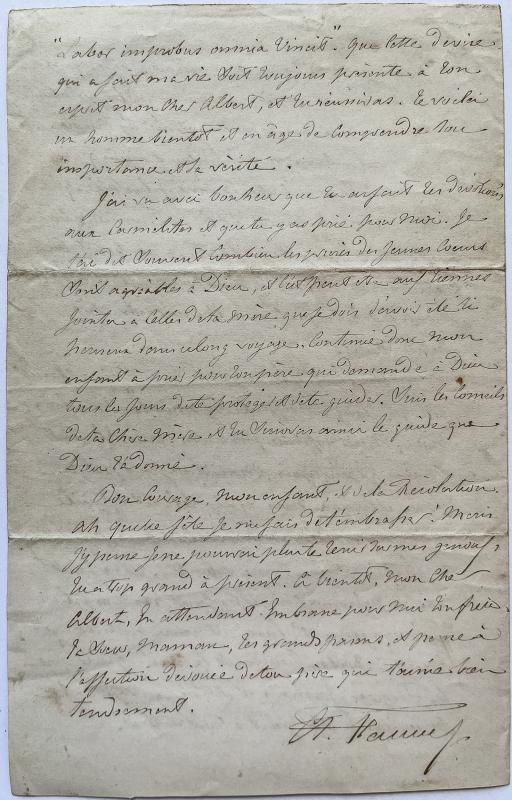 "Labor improbus omnia Vincit". Que cette devise
qui a fait ma vie soit toujours présente à ton
esprit mon cher Albert, et tu réussiras. Te voilà
un homme bientôt et en âge de comprendre son
importance et sa vérité.
J'ai vu avec bonheur que tu as fait tes dévotions
aux Carmélites et que tu y as prié pour moi. Je
t'ai dit souvent combien les prières des jeunes coeurs
sont agréables à Dieu, et c'est peut être aux tiennes
jointes à celles de ta mère que je dois d'avoir été si
heureux dans ce long voyage. Continue donc mon
enfant à prier pour ton père qui demande à Dieu
tous les jours de te protéger et de te guider. Suis les conseils
de ta chère mère et tu suivras ainsi le guide que
Dieu t'a donné.
Bon courage, mon enfant, et de la Résolution.
Ah quelle fête je me fais de t'embrasser! Mais
j'y pense je ne pourrai plus te tenir sur mes genoux,
tu es trop grand à présent. A bientôt, mon cher
Albert, en attendant. Embrasse pour moi ton frère
ta soeur, maman, tes grands parens, et pense à
l'affection dévouée de ton père qui t'aime bien
tendrement.